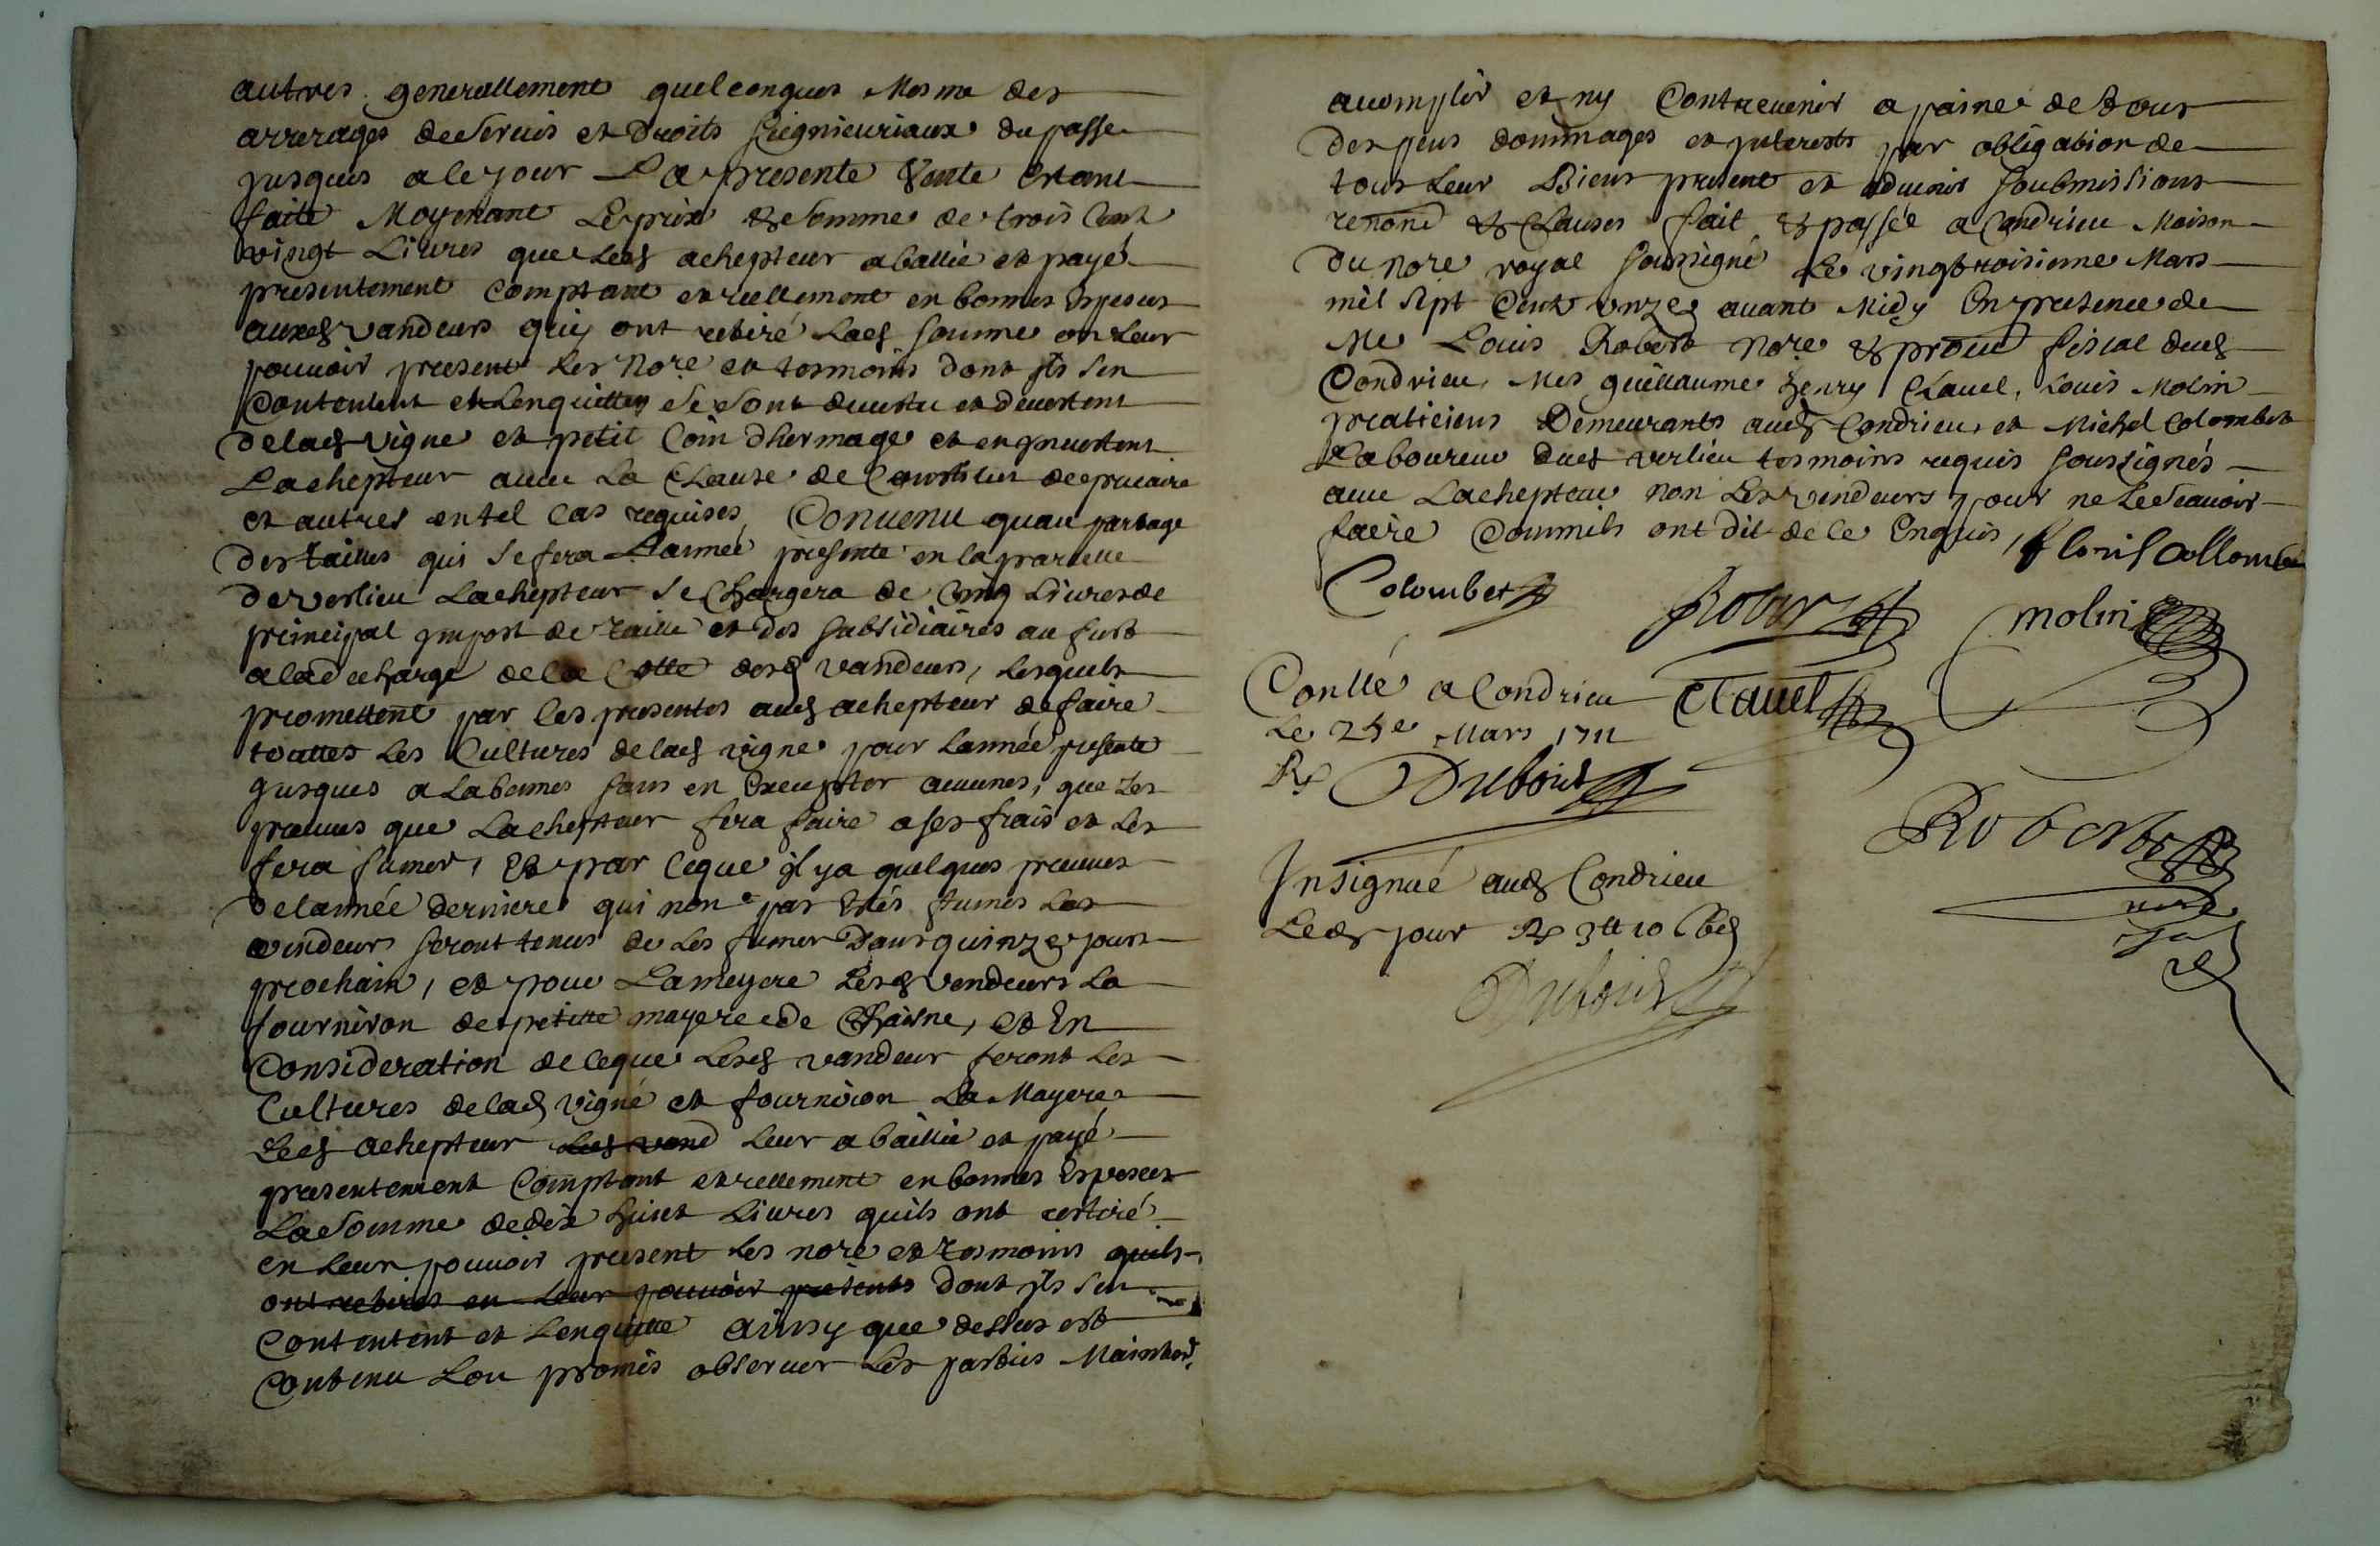 autres generallement quelconques Mesme des
arrerages de servis et Droits seignieuriaux du passe
jusques a ce jour La presente Vante Estant
faite Moyenant Le prix & somme de trois Cent
vingt Livres que led achepteur a ballié et payé
presentement comptant et reellement en bonnes Especes
auxd vandeurs quy ont retiré lad somme en leur
pouvoir present les Nore et tesmoins dont ils sen
Contentent et Lenquittent se sont devestu et devestent
de lad vigne et petit Coin dhermage et en jnvestent
Lachepteur avec La Clause de Constitut de precaire
et autres en tel cas requises, Convenu quau partage
des tailles qui se fera Lannée presente en la parcelle
de verlieu Lachepteur se Chargera de Cinq Livres de
principal jmpost de taille et des subsidiaires au fust
a la decharge de la Cotte desd vandeurs, lesquels
promettent par les presentes aud achepteur de faire
touttes Les Cultures de lad vigne pour Lannée presente
jusques a Labennes sans en Excepter aucunes, que Les
preuves que Lachepteur fera faire a ses frais et les
fera fumer, et par ceque il y a quelques preuves
de lannée derniere qui nont pas Estés fumés Les
vendeurs seront tenus de Les fumer Dans quinze jours
prochain, et pour Lameyere Lesd vendeurs La
fourniron de petitte mayere de Chaisne, et En
Consideration de ceque Lesd vandeur feront Les
Cultures de lad vigne et fourniron La Mayere
Led achepteur led vend leur a baillié et payé
presentement Comptant et reellement en bonnes Especes
La somme de dix huict Livres quils ont retiré
en leur pouvoir present les nore et tesmoins quils
ont retirés en leur pouvoir presents dont ils sen
Contentent et Lenquitte ainsy que dessus est
Contenu Lon promis observer Les parties Maintenir
accomplir et ny Contrevenir a paine de tous
despens dommages et jnterests par obligation de
tous Leur Biens present et advenir soubmissions
renond & Clauses fait & passée a Condrieu Maison
du nore royal soussigné Le vingtroisieme Mars
mil sept Cent unze avant Midy En presence de
Me Louis Robert nore & procu fiscal dud
Condrieu, Mes guillaume henry Clavel, Louis Molin
praticiens Demeurants aud Condrieu, et Michel Colombet
Laboureur dud verlieu tesmoins requis soussignés
avec Lachepteur non Les vendeurs pour ne le scavoir
faire Commils ont dit de ce Enquis, floris Collombet
Colombet Robert molin
Conllé a Condrieu Clavel
Le 25e Mars 1711
Rx Dubois
Robert
nore
Insignué aud Condrieu
Led jour Rx 3tt 10
Dubois